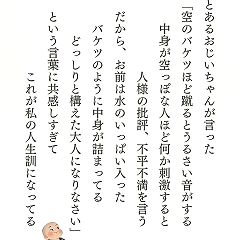 とあるおじいちゃんが言った
「空のバケツほど蹴るとうるさい音がする
中身が空っぽな人ほど何か刺激すると
人様の批評、不平不満を言う
だから、お前は水のいっぱい入った
バケツのように中身が詰まってる
どっしりと構えた大人になりなさい」
という言葉に共感しすぎて
これが私の人生訓になってる